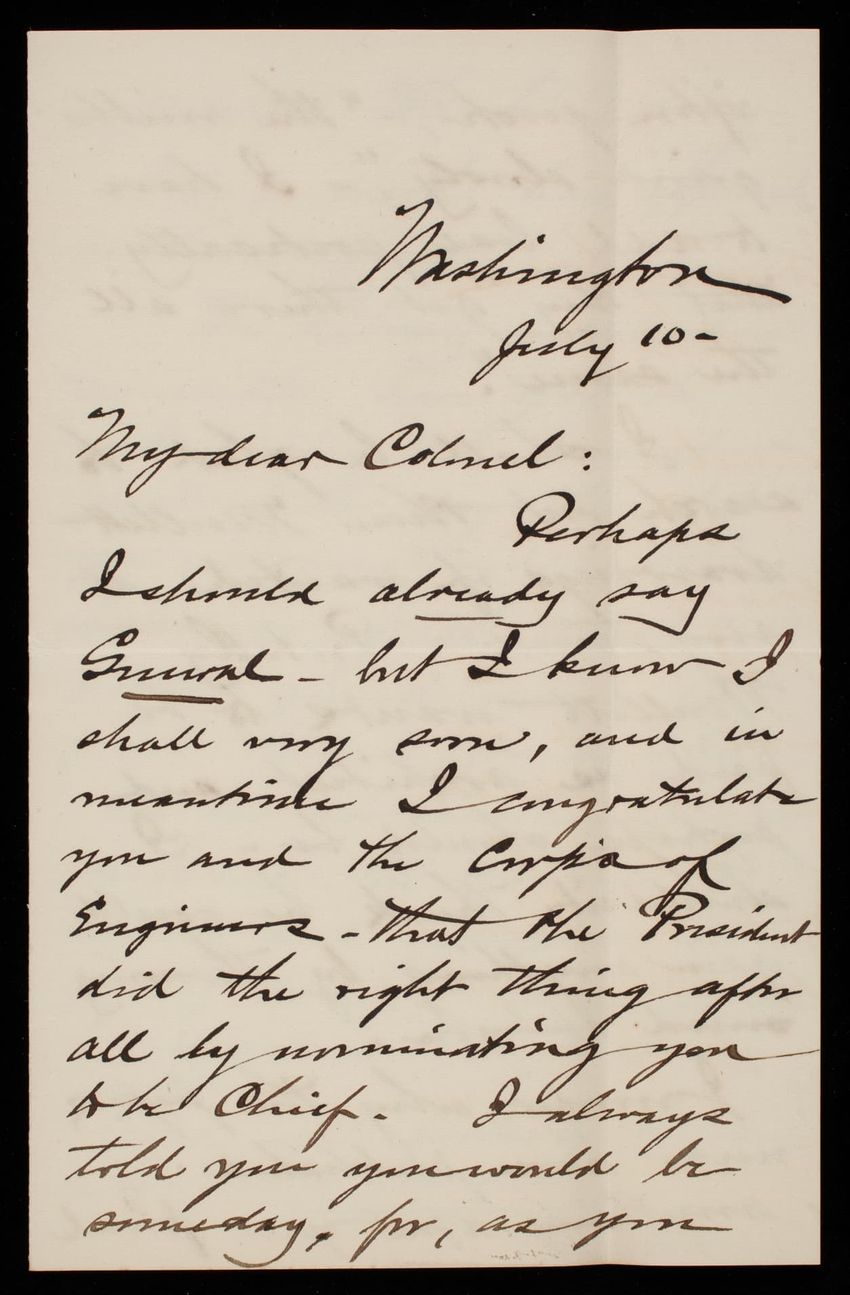 Washington
July 10-
My dear Colonel:
Perhaps
I should already say
General - but I know I
shall very soon, and in
meantime I congratulate
you and the Corps of
Engineers - that the President
did the right thing after
all by nominating you
to be Chief. I always
told you you would be
someday, for, as you